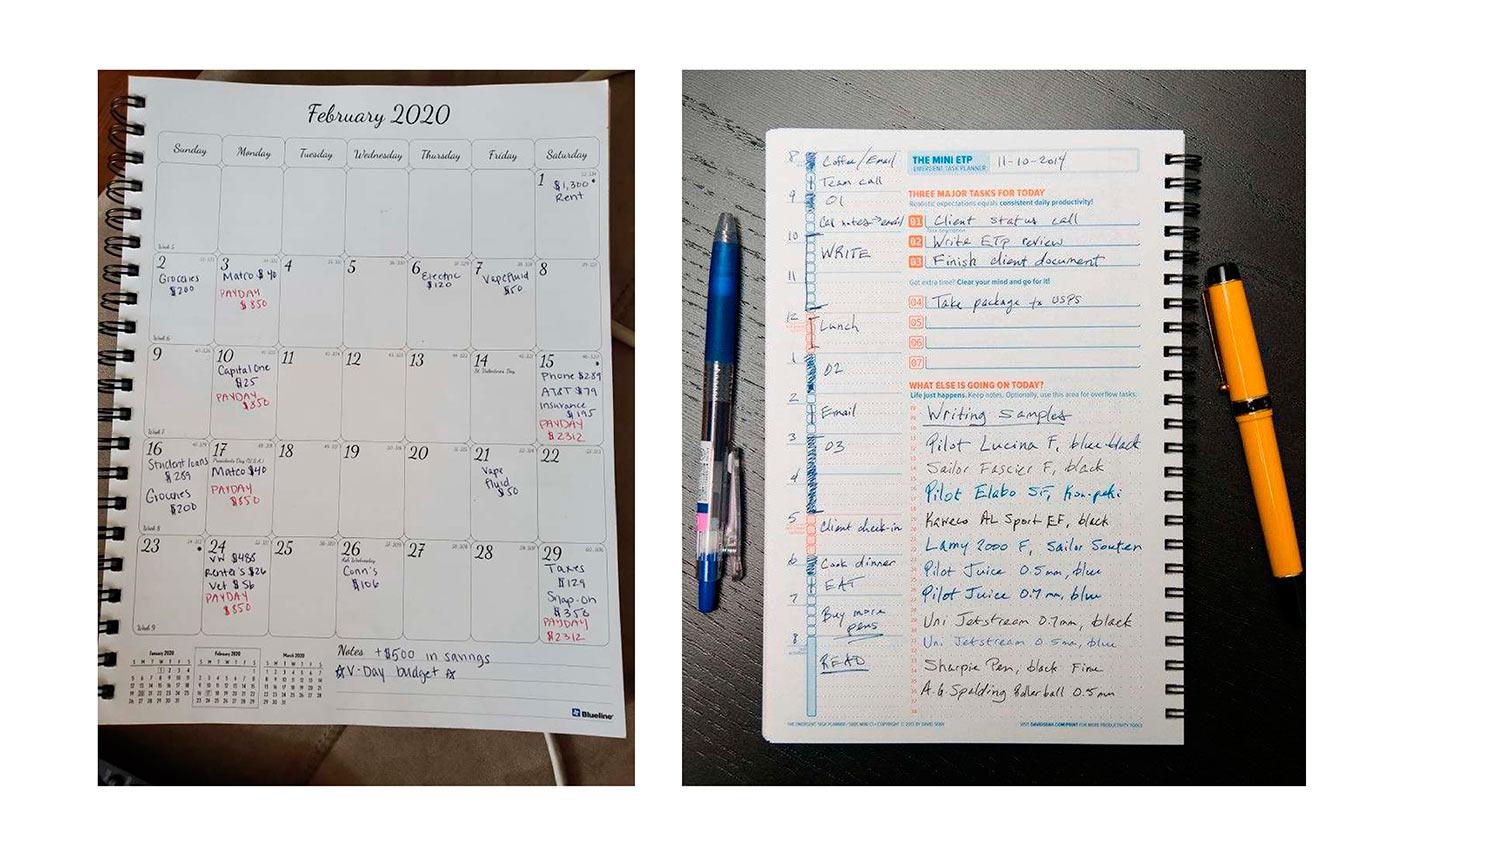 February 2020
Sunday Monday Tuesday Wednesday Thursday Friday Saturday
1
$1,300
Rent
Week 5
2
Groceries
$200
3
Matco $40
PAYDAY
$850
4
5
6
Electric
$120
7
Vape fluid
$50
8
Week 6
9
10
Capital One
$25
PAYDAY
$850
11
12
13
14
St. Valentines Day
15
Phone $289
AT&T $79
insurance
$195
PAYDAY
$2312
Week 7
16
Student loans
$289
Groceries
$200
17
Presidents Day (U.S.A.)
Matco $40
PAYDAY
$850
18
19
20
21
Vape
fluid
$50
22
Week 8
23
24
VW $488
Renter's $26
Vet $56
PAYDAY
$850
25
26
Ash Wednesday
Conn's
$106
27
28
29
Taxes
$129
Snap-On
$358
PAYDAY
$2312
Week 9
January 2020
February 2020
March 2020
Notes +$500 in savings
V-Day budget
Blueline
THE MINI ETP
EMERGENT TASK PLANNER
11-10-2014
8 Coffee/Email
Team call
9 01
10
WRITE
11
12 Lunch
1 02
2 Email
3 03
4
5 Client check-in
6 Cook dinner
EAT
7 Buy more
pens
8
READ
THREE MAJOR TASKS FOR TODAY
Realistic expectations equals consistent daily productivity!
01 Client status call
02 Write ETP review
03 Finish client document
Got extra time? Clear your mind and go for it!
04 Take package to USPS
05
06
07
WHAT ELSE IS GOING ON TODAY?
Life just happens. Keep notes. Optionally, use this area for overflow tasks.
Writing Samples
Pilot Lucina F, blue black
Sailor Fascier F, black
Pilot Elabo SF, Kon-peki
Kaweco AL Sport EF, black
Lamy 2000 F, Sailor Souten
Pilot Juice 0.5mm, blue
Pilot Juice 0.7mm, blue
Uni Jetstream 0.7mm, black
Uni Jetstream 0.5mm, blue
Sharpie Pen, black Fine
A.G. Spalding Rollerball 0.5mm
VISIT DAVIDSEAH.COM/PRINT FOR MORE PRODUCTIVITY TOOLS